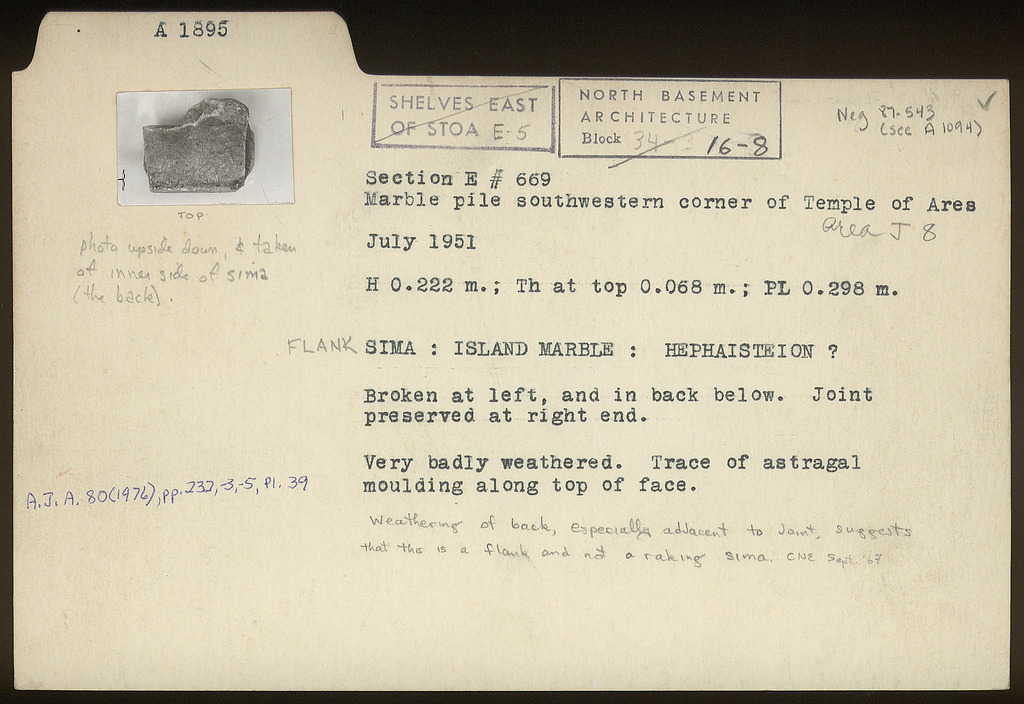 A 1895
SHELVES EAST
OF STOA E-5
NORTH BASEMENT
ARCHITECTURE
Block 34 16-8
Neg 87-543
(see A 1094)
Section E # 669
Marble pile southwestern corner of Temple of Ares
Area J 8
July 1951
H 0.222 m.; Th at top 0.068 m.; PL 0.298 m.
TOP
photo upside down, & taken
of inner side of sima
(the back).
FLANK SIMA : ISLAND MARBLE : HEPHAISTEION ?
Broken at left, and in back below. Joint
preserved at right end.
Very badly weathered. Trace of astragal
moulding along top of face.
A.J.A. 80 (1976), pp. 232, -3, -5, Pl. 39
Weathering of back, especially adjacent to joint, suggests
that this is a flank and not a raking sima. CNE Sept. '67